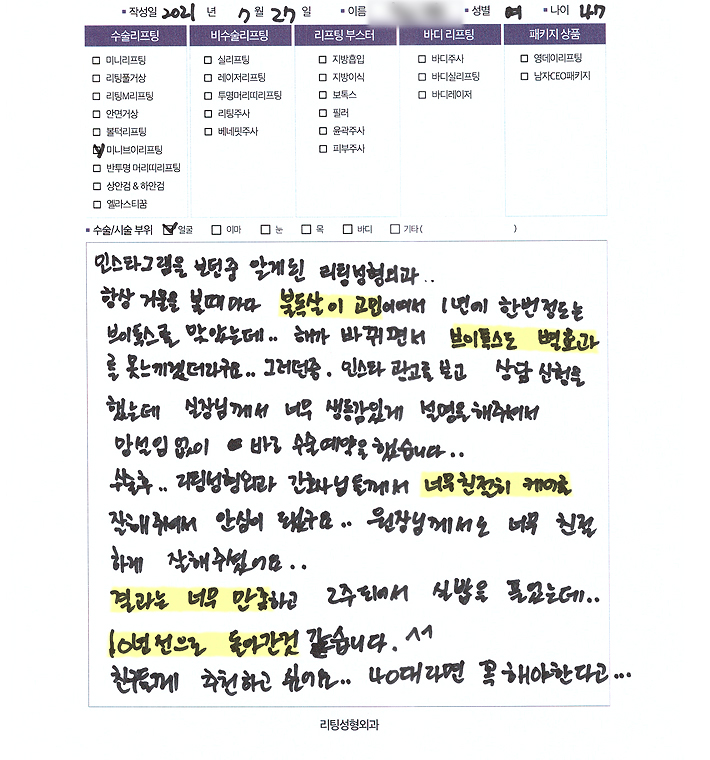 ▪ 작성일 2021 년 7 월 27 일 ▪ 이름 ▪ 성별 여 ▪ 나이 47
수술리프팅 비수술리프팅 리프팅 부스터 바디 리프팅 패키지 상품
미니리프팅 실리프팅 지방흡입 바디주사 영데이리프팅
리팅풀거상 레이저리프팅 지방이식 바디실리프팅 남자CEO패키지
리팅M리프팅 투명머리띠리프팅 보톡스 바디레이저
안면거상 리팅주사 필러
볼턱리프팅 베네핏주사 윤곽주사
미니브이리프팅 피부주사
반투명 머리띠리프팅
상안검 & 하안검
엘라스티꿈
▪ 수술/시술 부위 얼굴 이마 눈 목 바디 기타( )
인스타그램을 보던중 알게된 리팅성형외과..
항상 거울을 볼때마다 불독살이 고민이여서 1년에 한번정도는
브이톡스를 맞았는데.. 해가 바뀌면서 브이톡스도 별효과
를 못느끼겠더라구요.. 그러던중. 인스타 광고를 보고 상담 신청을
했는데 실장님께서 너무 생동감있게 설명을해주셔서
망설임 없이 바로 수술예약을 했습니다..
수술후.. 리팅성형외과 간호사님들께서 너무친절히 케어를
잘해주셔서 안심이 됐구요.. 원장님께서도 너무 친절
하게 잘해주셨어요..
결과는 너무 만족하고 2주뒤에서 실밥을 풀었는데..
10년전으로 돌아간것 같습니다.^^
친구들께 추천하고 싶어요.. 40대라면 꼭 해야한다고...
리팅성형외과